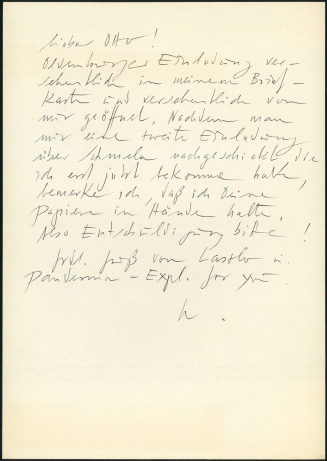 lieber Otto!
Oldenburger Einladung ver-
sehentlich in meinem Brief-
Kasten und versehentlich von
mir geöffnet. Nachdem man
mir eine zweite Einladung
über Schmela nachgeschickt die
ich erst jetzt bekomme habe,
bemerke ich, daß ich Deine
Papiere in Hände halte.
Also Entschuldigung bitte!
frdl. Grüß von Laszlo u.
Panderma - Expl. for you.